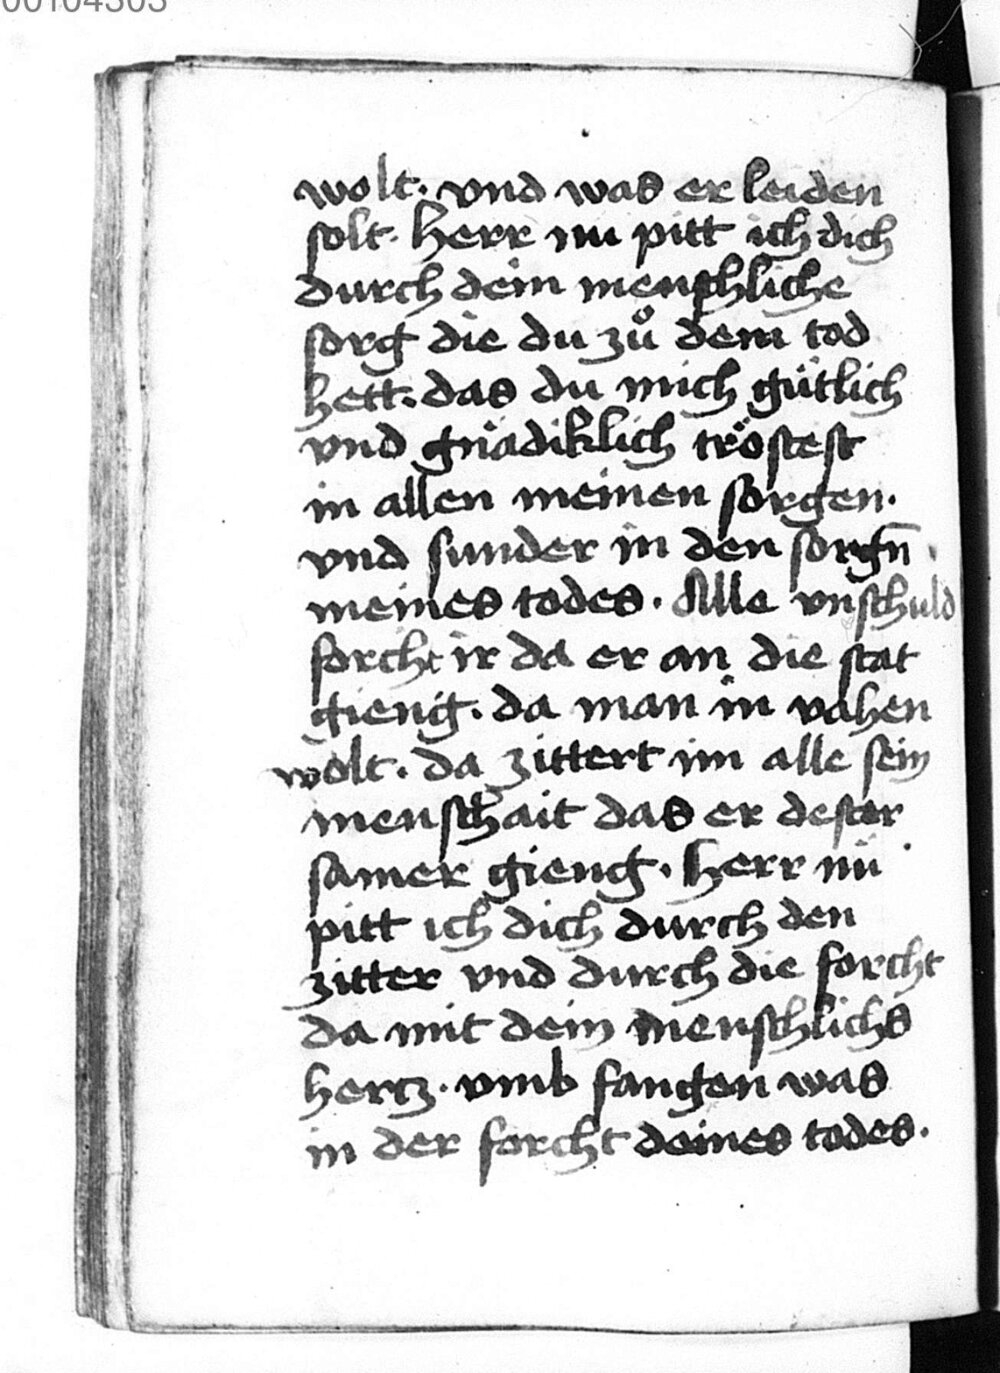 wolt. vnd was er leiden
solt. herr nu pitt ich dich
durch dein menschliche
sorg die du zů dem tod
hett. das du mich gütlich
vnd gnädiklich tröstest
in allen meinen sorgen.
vnd sunder in den sorgn̄
meines todes. Alle vnschuld
forcht ir da er an die stat
gieng. da man in vahen
wolt. da zittert im alle sein
menschait das er dester
samer gieng. herr nu
pitt ich dich durch den
zitter vnd durch die forcht
da mit dein menschlichs
hertz. vmb fangen was
in der forcht deines todes.